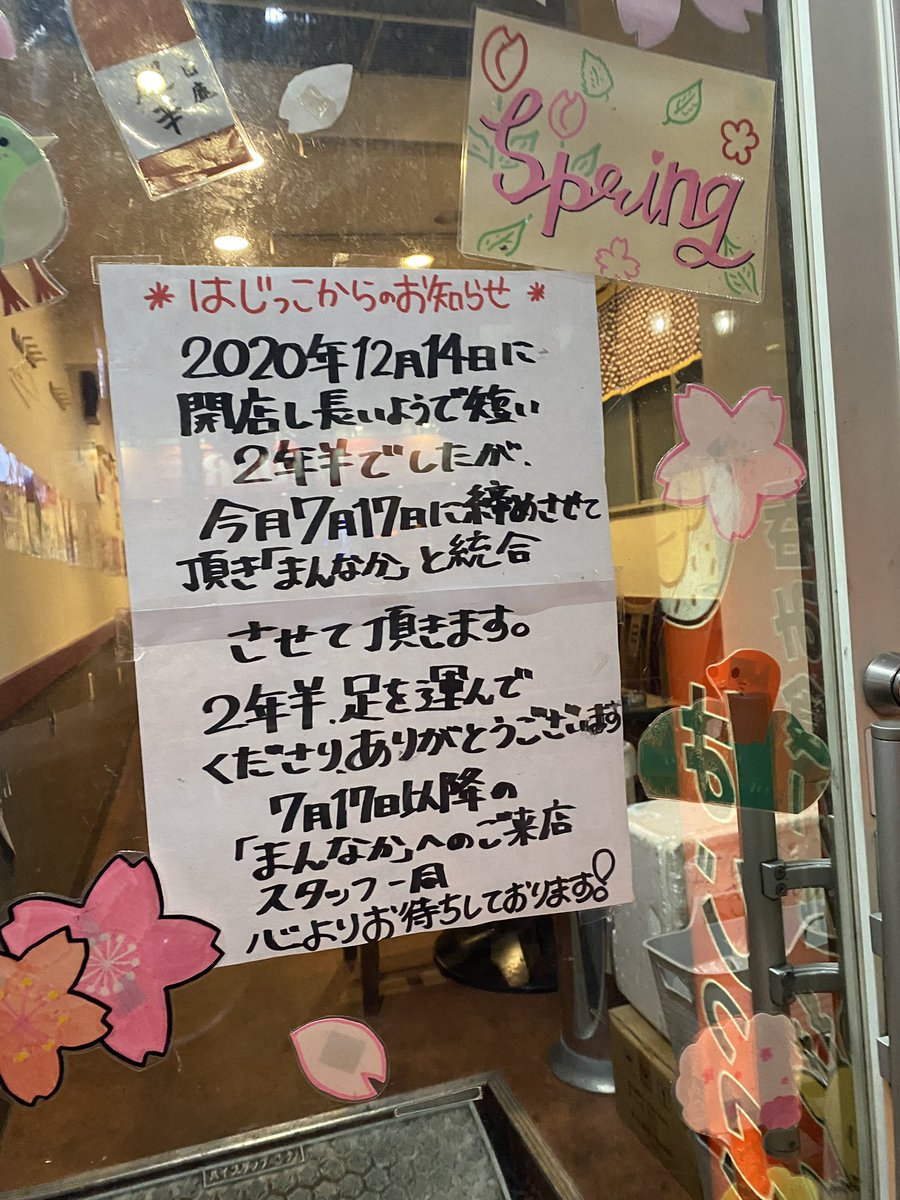 Spring
* はじっこからのお知らせ *
2020年12月14日に
開店し長いようで短い
2年半でしたが、
今月7月17日に締めさせて
頂き「まんなか」と統合
させて頂きます。
2年半、足を運んで
くださり、ありがとうございます
7月17日以降の
「まんなか」へのご来店
スタッフ一同
心よりお待ちしております!